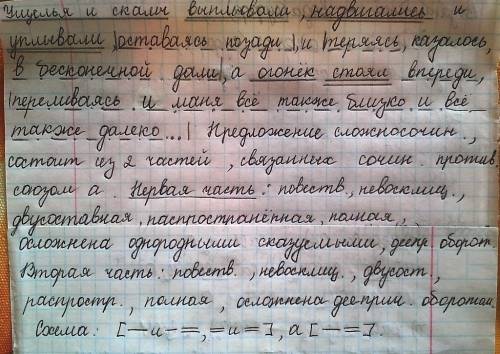 Ущелья и скалы выплывали, надвигались и
уплывали |оставаясь позади|, и |теряясь, казалось,
в бесконечной дали|, а огонёк стоял впереди,
|переливаясь и маня всё также близко и всё
также далеко...| Предложение сложносочин.,
состоит из 2 частей, связанных сочин. против.
союзом а. Первая часть: повеств., невосклиц.,
двусоставная, распространённая, полная,,
осложнена однородными сказуемыми, деепр. оборот.
Вторая часть: повеств., невосклиц., двусост.,
распростр., полная, осложнена дееприч. оборотом
Схема: [— и — =, = и =], а [— =].